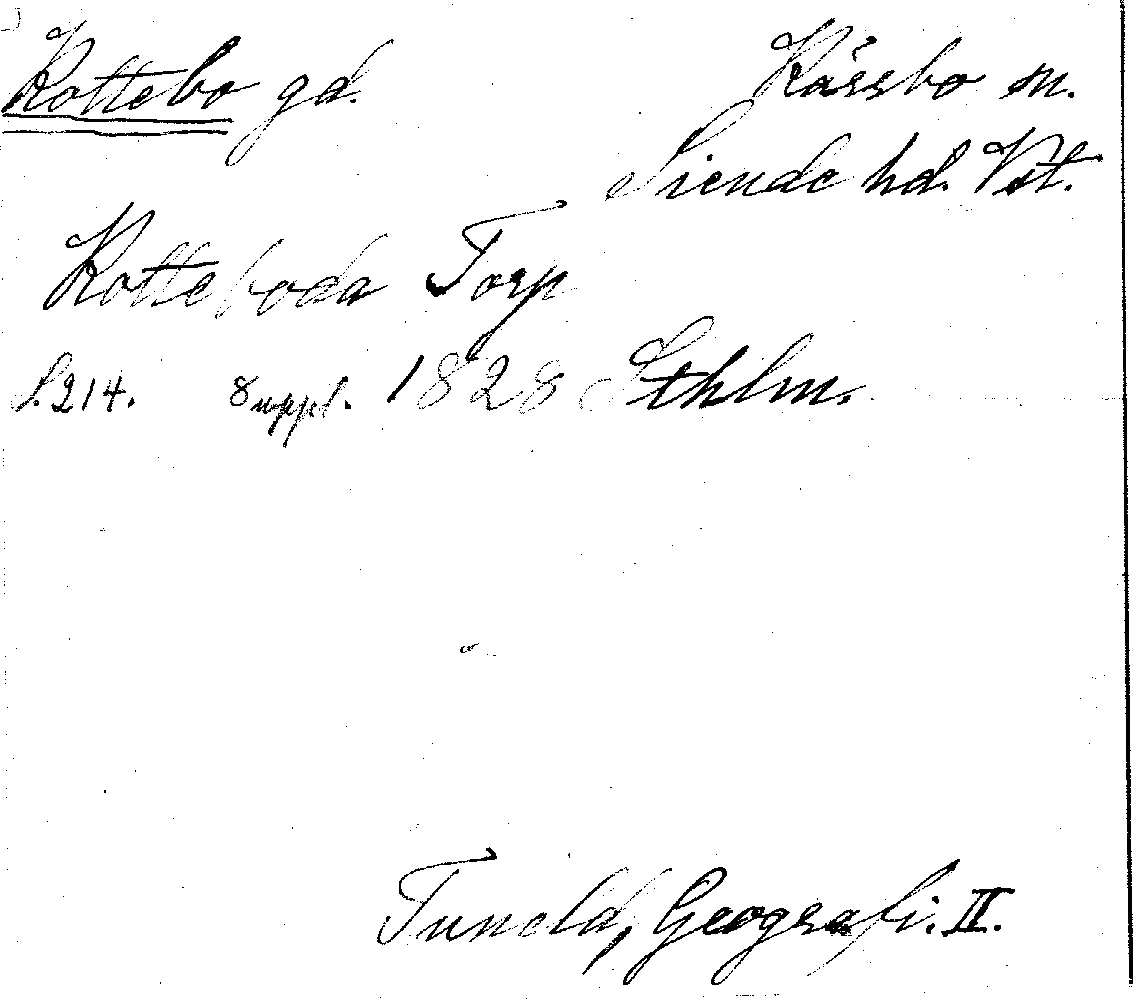 Kottebo gd. Kärrbo sn.
Siende hd. Vstl.
Kotteboda Torp
S. 214. 8 uppl. 1828 Sthlm.
Tuneld, Geografi. II.